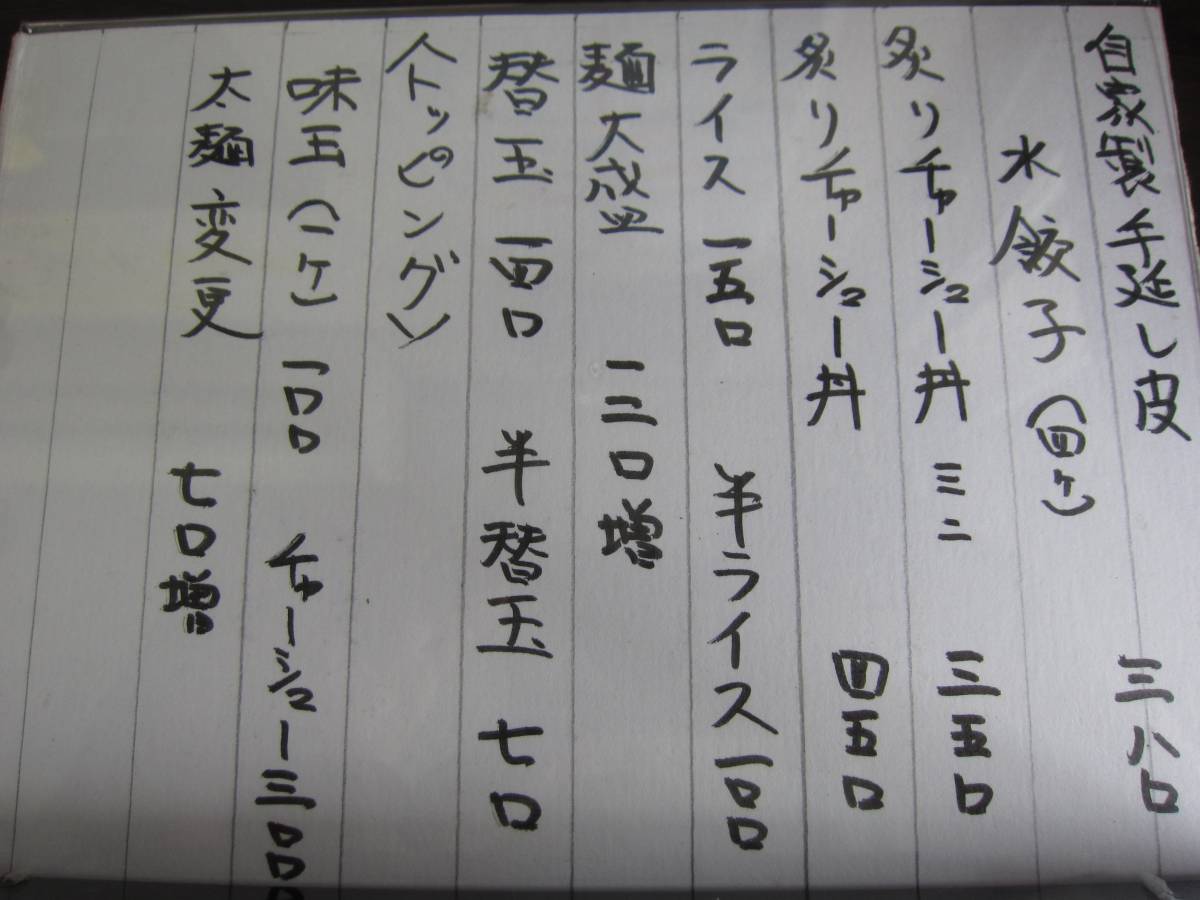 自家製手延し皮 三八〇
水餃子(四ヶ)
炙りチャーシュー丼 ミニ 三五〇
炙りチャーシュー丼 四五〇
ライス 一五〇 半ライス 一〇〇
麺大盛 一二〇増
替玉 一四〇 半替玉 七〇
〈トッピング〉
味玉(一ヶ) 一〇〇 チャーシュー 三〇〇
太麺変更 七〇増